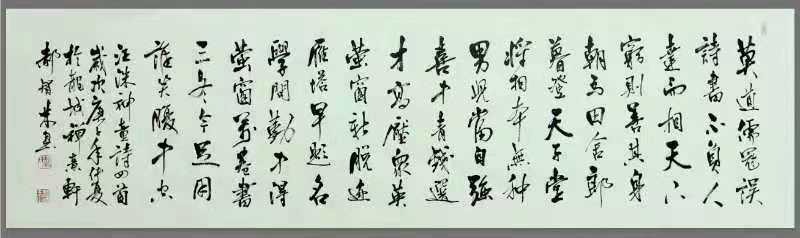 莫道儒冠誤
詩書不負人
達而相天下
窮則善其身
朝为田舍郎
暮登天子堂
將相本無种
男兒當自強
喜中青錢選
才高壓眾英
螢窗新脫迹
雁塔早題名
學問勤中得
螢窗萬卷書
三冬今足用
誰笑腹中空
汪洙神童詩四首
歲次庚子年仲夏
於龍城意軒